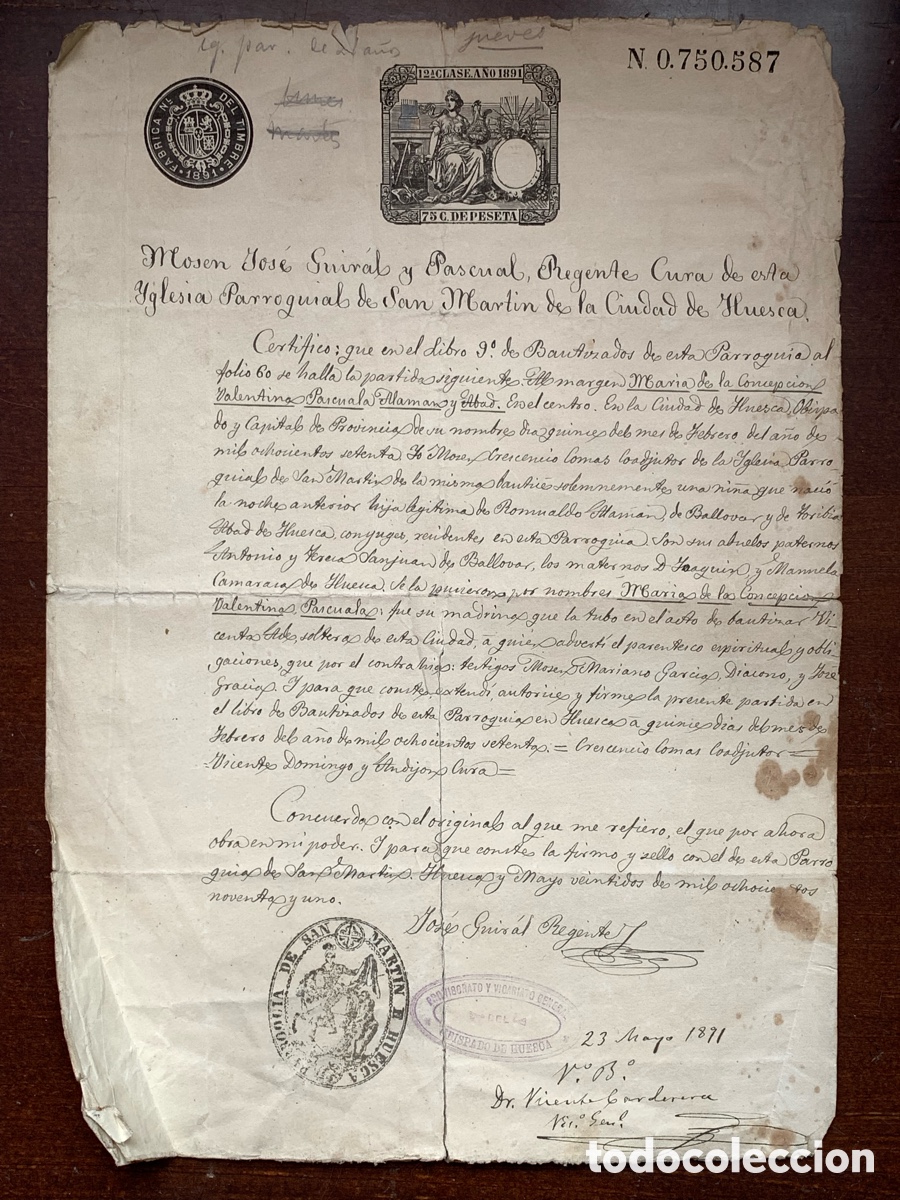 jueves
N. 0.750.587
12ª CLASE. AÑO 1891
FABRICA Nˡ DEL TIMBRE
1891
75 C. DE PESETA
Mosen José Guirál y Pascual, Regente Cura de esta
Yglesia Parroquial de San Martin de la Ciudad de Huesca.
Certifico: que en el Libro 9º de Bautizados de esta Parroquia al
folio 60 se halla la partida siguiente. Al margen Maria de la Concepcion
Valentina Pascuala Alaman y Abad. En el centro. En la Ciudad de Huesca, Obispa
do y Capital de Provincia de su nombre dia quince del mes de Febrero del año de
mil ochocientos setenta Yo Mosen Crescencio Comas Coadjutor de la Yglesia Parro
quial de San Martin de la misma bauticé solemnemente una niña que nació
la noche anterior hija legitima de Romualdo Alaman, de Ballovar y de Toribia
Abad de Huesca, conyuges, residentes en esta Parroquia. Son sus abuelos paternos
Antonio y Teresa Sanjuan de Ballovar, los maternos D. Joaquin y Manuela
Camarasa de Huesca. Se la pusieron por nombres Maria de la Concepcion
Valentina Pascuala: fue su madrina que la tubo en el acto de bautizar Vi
centa soltera de esta Ciudad, a quien advertí el parentesco espiritual y obli
gaciones, que por el contrahia: testigos Mosen Mariano Garcia, Diacono, y José
Gracia. Y para que conste extendí autorice y firme la presente partida en
el libro de Bautizados de esta Parroquia en Huesca a quince dias del mes de
Febrero del año de mil ochocientos setenta. = Crescencio Comas Coadjutor =
Vicente Domingo y Cura =
Concuerda con el original al que me refiero, el que por ahora
obra en mi poder. Y para que conste la firmo y sello con el de esta Parro
quia de San Martin. Huesca y Mayo veintidos de mil ochocientos
noventa y uno.
José Guirál Regente
PARROQUIA DE SAN MARTIN D HUESCA
PROVISORATO Y VICARIATO GENERAL
OBISPADO DE HUESCA
23 Mayo 1891
Vº. Bº.
Dr. Vicente Carderera
Vic.º Gen.l
todocoleccion